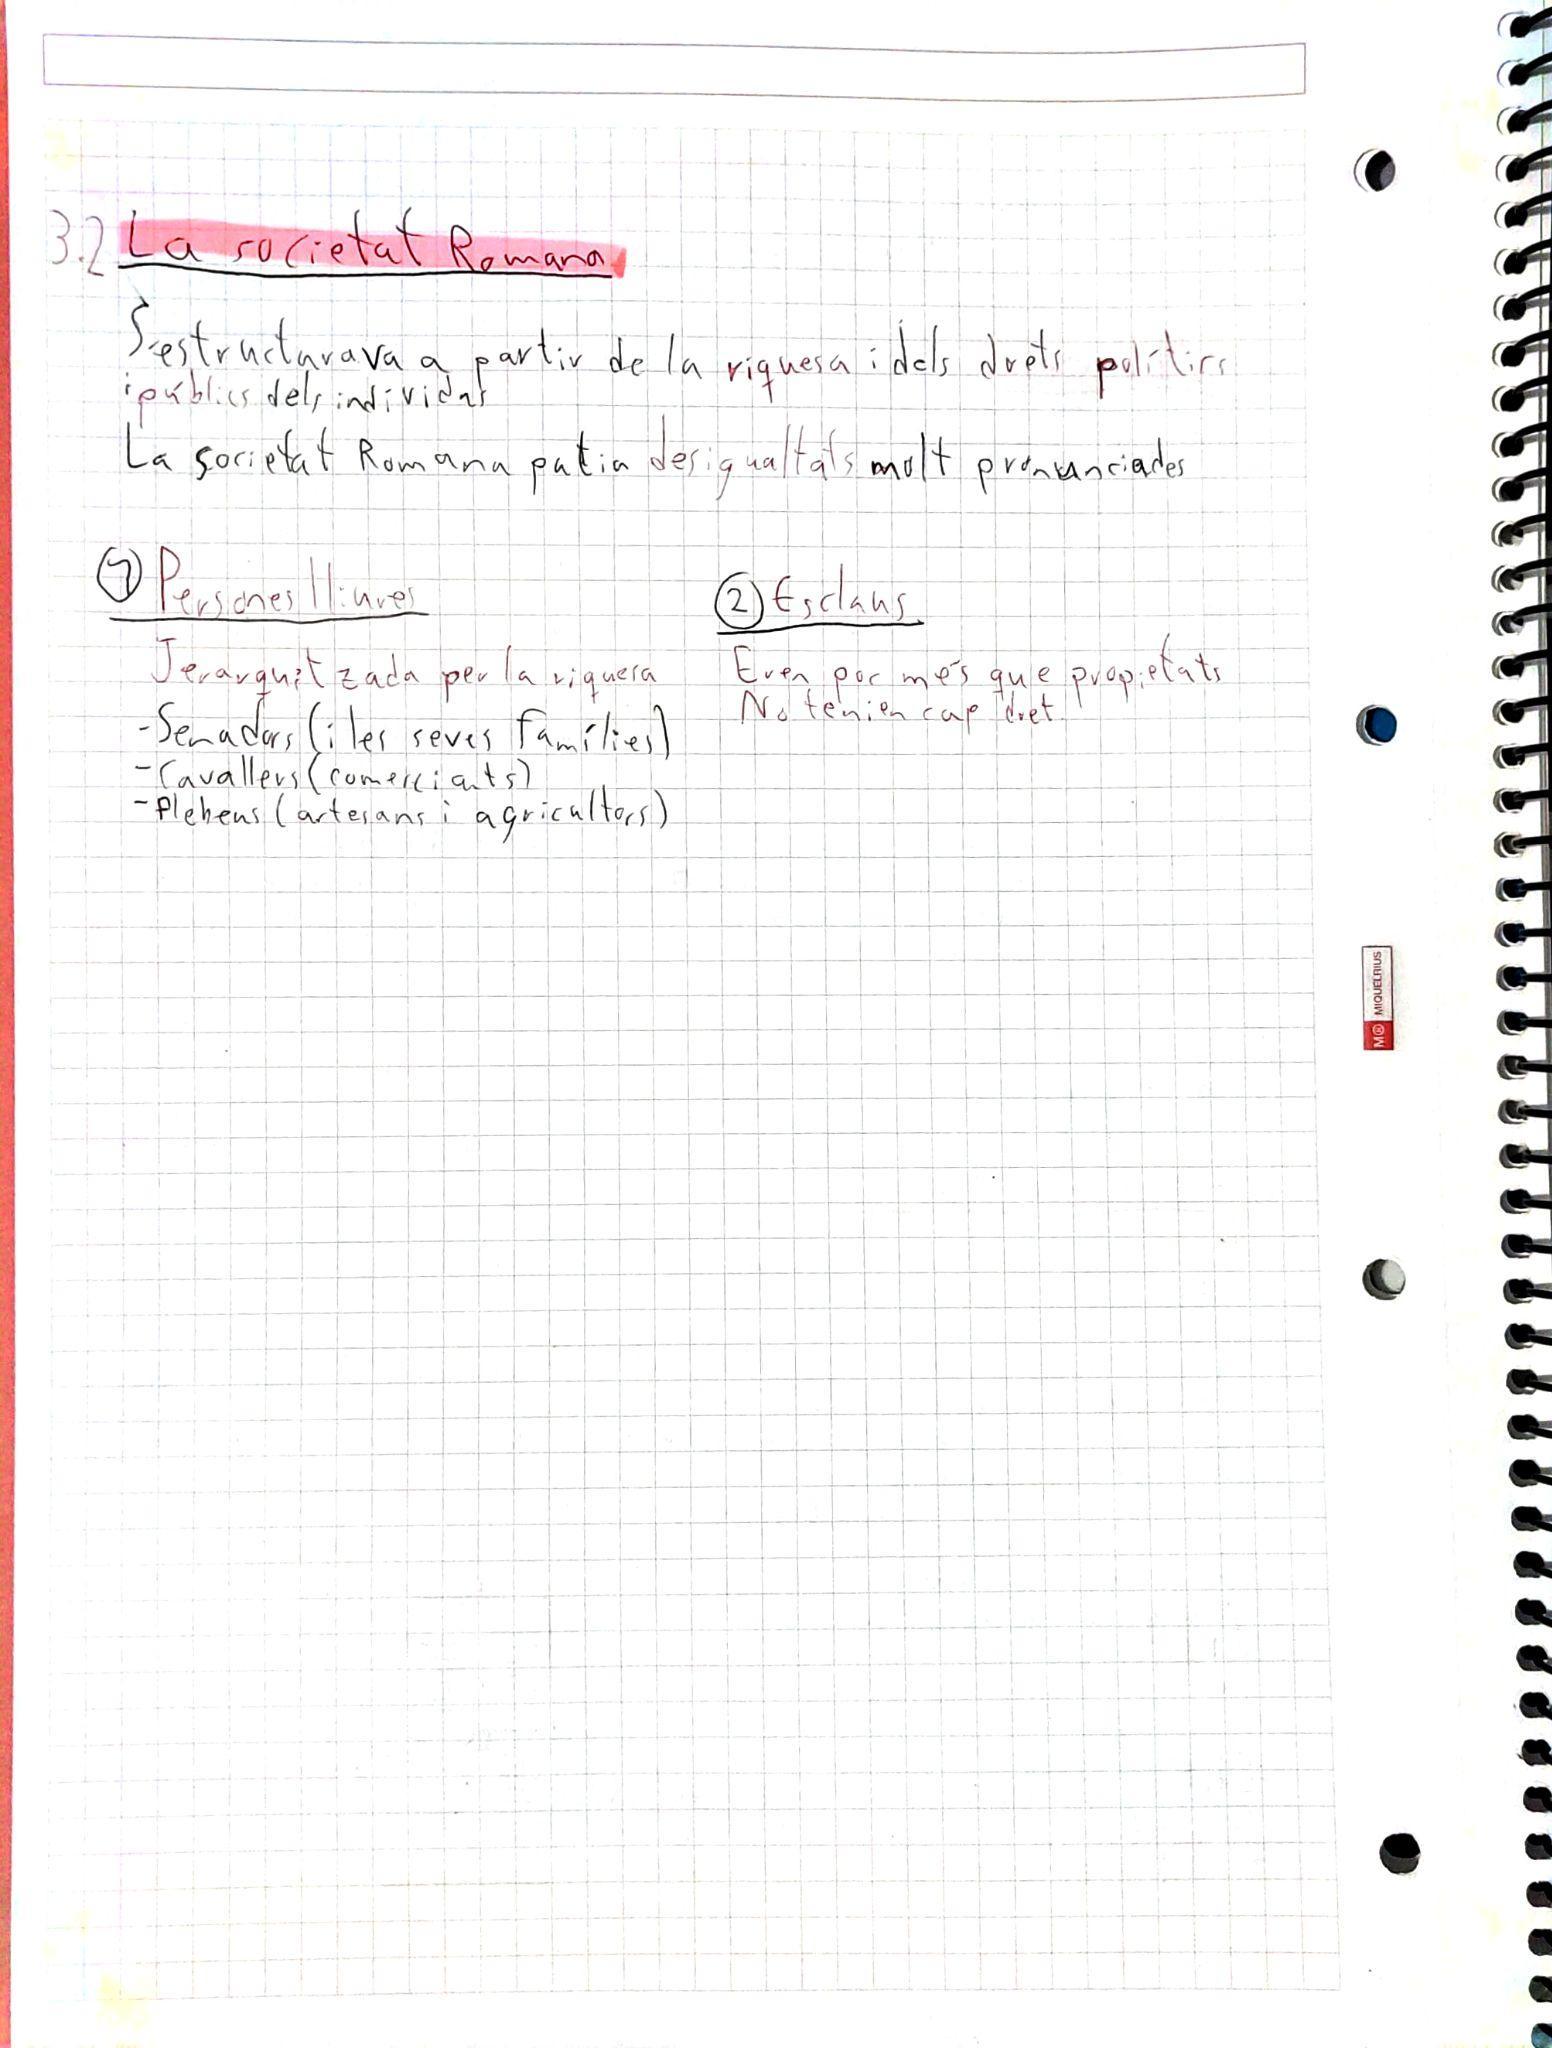 3.2 La societat Romana
S'estructurava a partir de la riquesa i dels drets polítics
i públics dels individus
La societat Romana patia desigualtats molt pronunciades
1 Persones lliures
Jerarquitzada per la riquesa
- Senadors (i les seves famílies)
- Cavallers (comerciants)
- Plebeus (artesans i agricultors)
2 Esclaus
Eren poc més que propietats
No tenien cap dret
M MIQUELRIUS